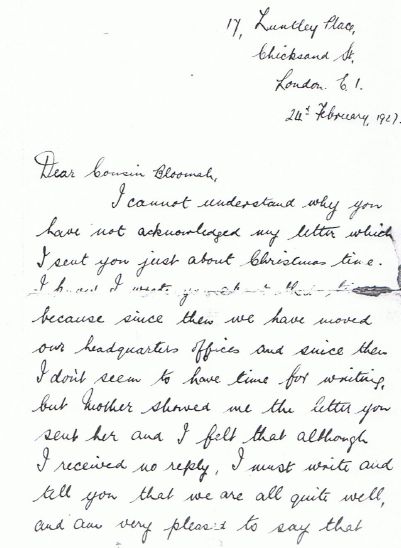 17, Luntley Place,
Chicksand St,
London. E. 1.
24th February, 1927.
Dear Cousin Bloomah,
I cannot understand why you
have not acknowledged my letter which
I sent you just about Christmas time.
I
because since then we have moved
our headquarters offices and since then
I don't seem to have time for writing,
but Mother showed me the letter you
sent her and I felt that although
I received no reply, I must write and
tell you that we are all quite well,
and am very pleased to say that